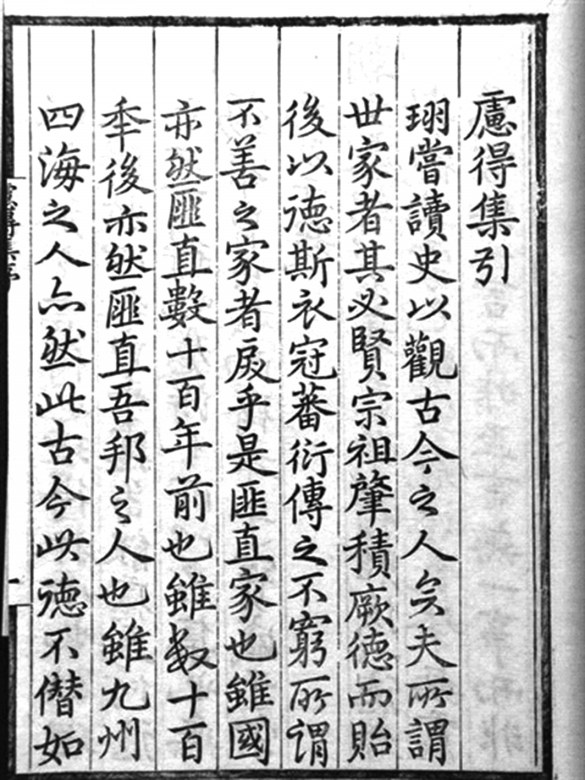 慮得集引
珝嘗讀史以觀古今之人矣夫所謂
世家者其必賢宗祖肇積厥德而貽
後以德斯衣冠蕃衍傳之不窮所謂
不善之家者戾乎是匪直家也雖國
亦然匪直數十百年前也雖數十百
年後亦然匪直吾邦之人也雖九州
四海之人亦然此古今此德不僭如